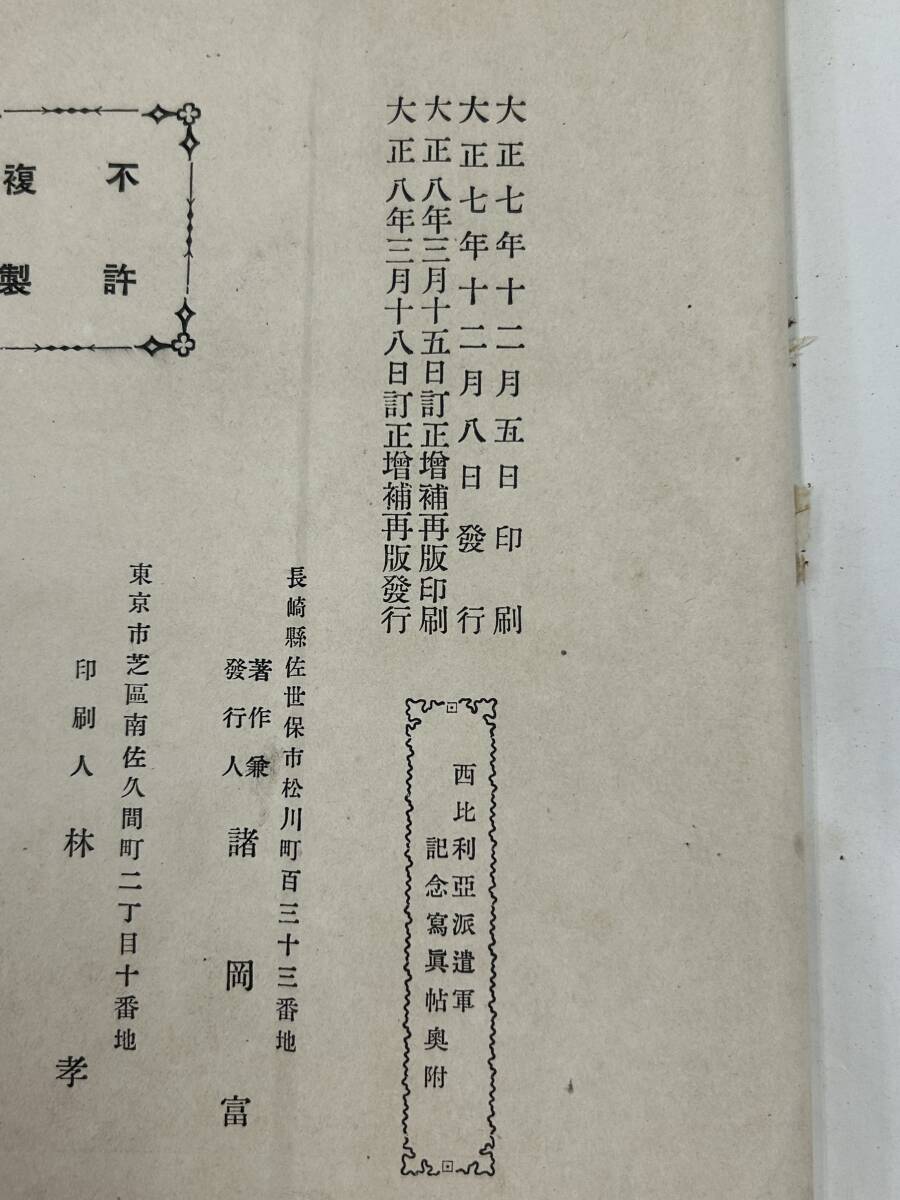 大正七年十二月五日印刷
大正七年十二月八日發行
大正八年三月十五日訂正增補再版印刷
大正八年三月十八日訂正增補再版發行
西比利亞派遣軍
記念寫眞帖奧附
不許
複製
長崎縣佐世保市松川町百三十三番地
著作兼
發行人 諸岡富
東京市芝區南佐久間町二丁目十番地
印刷人 林孝